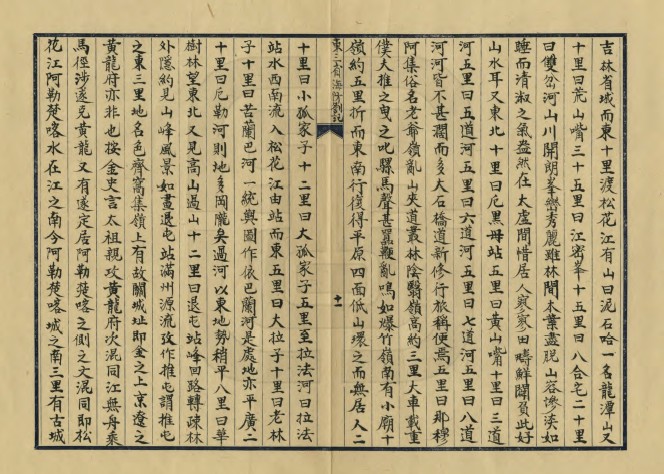 吉林省城而東十里渡松花江有山曰泥石哈一名龍潭山又
十里曰荒山嘴三十五里曰江密峯十五里曰八合屯二十里
曰雙岔河山川開朗峯巒秀麗雖林間木葉盡脫山容慘淡如
睡而清淑之氣盎然在大虛間惜居人寥寥田疇鮮闢負此好
山水耳又東北十里曰厄黑母站五里曰黃山嘴十里曰三道
河五里曰五道河五里曰六道河五里曰七道河五里曰八道
河河皆不甚濶而多大石橋道新修行旅稱便焉五里曰那穆
阿集俗名老爺嶺亂山夾道叢林陰翳嶺高約三里大車載重
僕夫推之曳之叱騾馬聲甚嚚鞭亂鳴如爆竹嶺南有小廟十
嶺約五里折而東南行復得平原四面低山環之而無居人二
東三省海防劄記
十一
十里曰小孤家子十二里曰大孤家子五里至拉法河曰拉法
站水西南流入松花江由站而東五里曰大拉子十里曰老林
子十里曰苦蘭巴河一統輿圖作依巴蘭河是處地亦平廣二
十里曰厄勒河則地多岡隴矣過河以東地勢稍平八里曰華
樹林望東北又見高山過山十二里曰退屯站峰回路轉疎林
外隱約見山峰風景如畫退屯站滿州源流攷作推屯謂推屯
之東三里地名色齊窩集嶺上有故關城址即金之上京遼之
黃龍府亦非也按金史言太祖親攻黃龍府次混同江無舟乘
馬徑涉遂克黃龍又有遂定居阿勒楚喀之側之文混同即松
花江阿勒楚喀水在江之南今阿勒楚喀城之南三里有古城